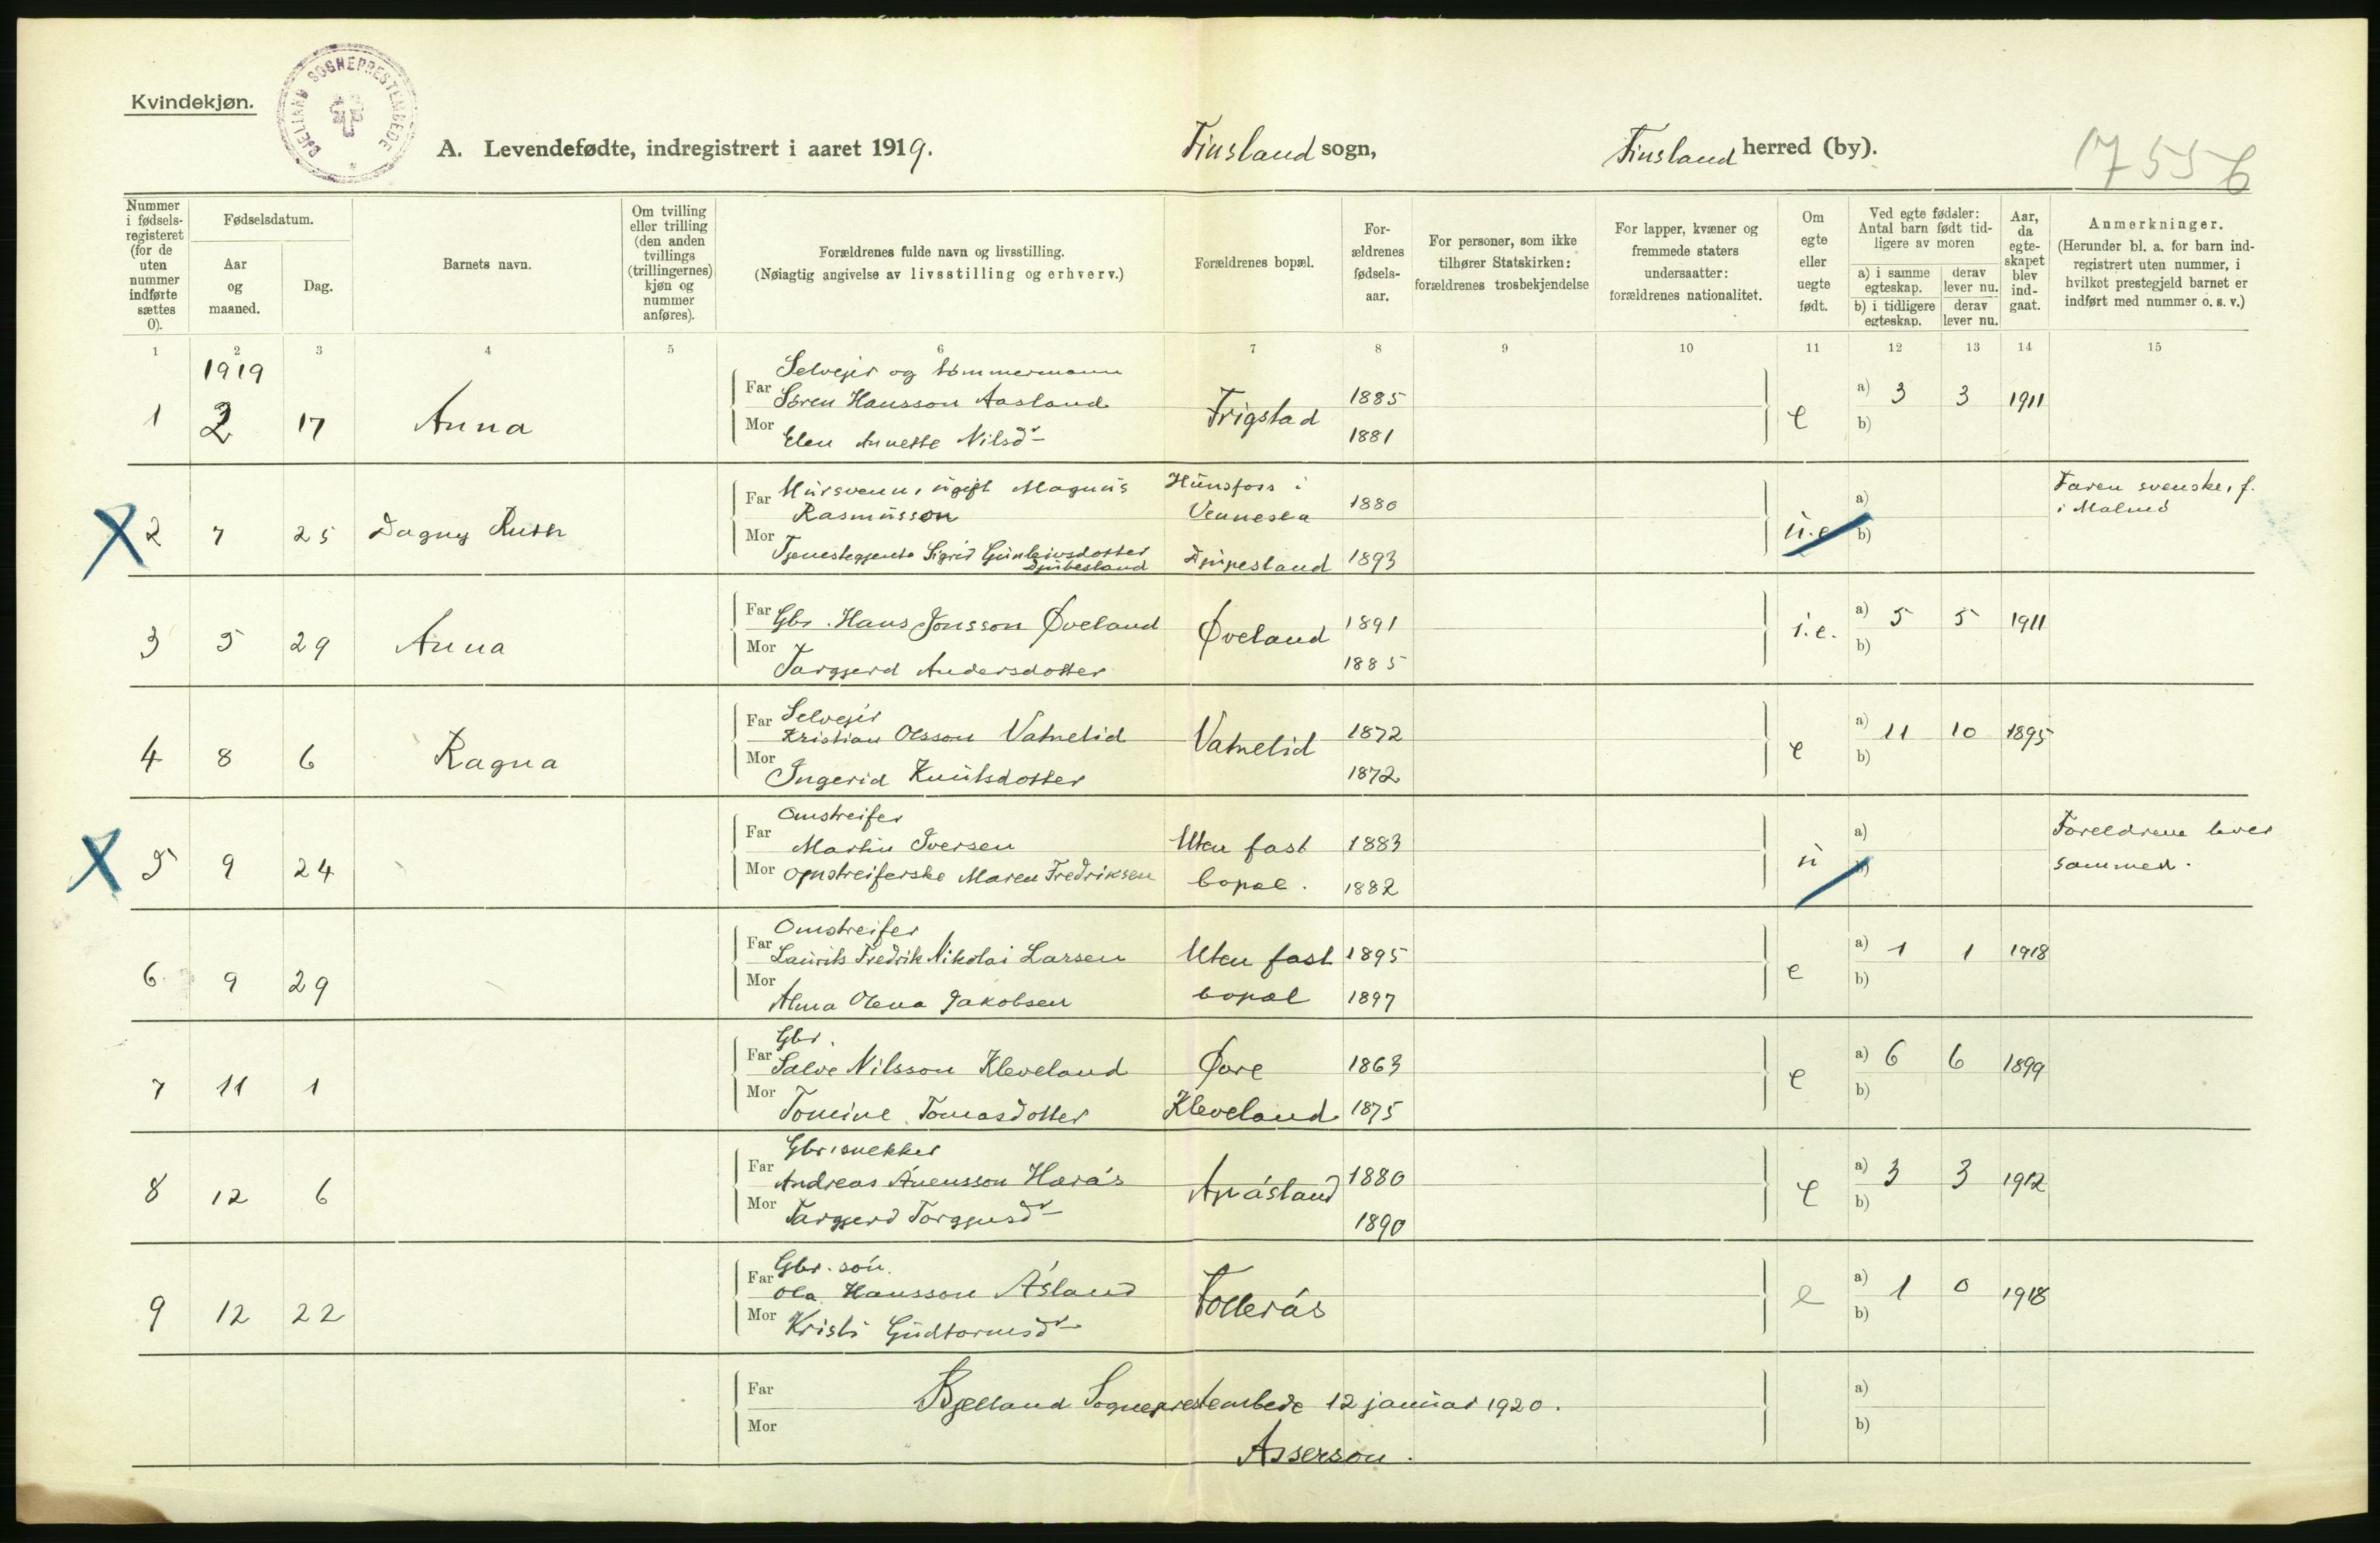 Kvindekjøn.
BJELLAND SOGNEPRESTEMBEDE
A. Levendefødte, indregistrert i aaret 1919.
Finsland sogn,
Finsland herred (by).
1755 6
Nummer i fødsels-registeret (for de uten nummer indførte sættes 0).
Fødselsdatum.
Aar og maaned.
Dag.
Barnets navn.
Om tvilling eller trilling (den anden tvillings (trillingernes) kjøn og nummer anføres).
Forældrenes fulde navn og livsstilling.
(Nøiagtig angivelse av livsstilling og erhverv.)
Forældrenes bopæl.
For-ældrenes fødsels-aar.
For personer, som ikke tilhører Statskirken: forældrenes trosbekjendelse
For lapper, kvæner og fremmede staters undersaatter: forældrenes nationalitet.
Om egte eller uegte født.
Ved egte fødsler: Antal barn født tid-ligere av moren
a) i samme egteskap.
derav lever nu.
b) i tidligere egteskap.
derav lever nu.
Aar, da egte-skapet blev ind-gaat.
Anmerkninger.
(Herunder bl. a. for barn ind-registrert uten nummer, i hvilket prestegjeld barnet er indført med nummer o. s. v.)
1 2 3 4 5 6 7 8 9 10 11 12 13 14 15
1919
Selvejer og tømmermann
1 2 17 Anna Far Søren Hansson Aasland Frigstad 1885 e a) 3 3 1911
Mor Elen Annette Nilsdr 1881 b)
X 2 7 25 Dagny Ruth Far Mursvenn, ugift Magnus Rasmusson Hunsfoss i Vennesla 1880 u.e a) Faren svenske, f. i Malmö
Mor Tjenestegjente Sigrid Gunleivsdotter Djubesland Djupesland 1893 b)
3 5 29 Anna Far Gbr. Hans Jonsson Øveland Øveland 1891 i.e. a) 5 5 1911
Mor Targjerd Andersdotter 1885 b)
4 8 6 Ragna Far Selvejer Kristian Olsson Vatnelid Vatnelid 1872 e a) 11 10 1895
Mor Ingerid Knutsdotter 1872 b)
X 5 9 24 Far Omstreifer Martin Iversen Uten fast 1883 u a) Foreldrene lever
Mor Omstreiferske Maren Fredriksen bopæl. 1882 b) sammen.
6 9 29 Far Omstreifer Laurits Fredrik Nikolai Larsen Uten fast 1895 e a) 1 1 1918
Mor Alma Olena Jakobsen bopæl 1897 b)
7 11 1 Far Gbr. Salve Nilsson Kleveland Øvre 1863 e a) 6 6 1899
Mor Tomine Tomasdotter Kleveland 1875 b)
8 12 6 Far Gbr. snekker Andreas Ånensson Harås 1880 e a) 3 3 1912
Mor Targjerd Torgjusdr 1890 b)
9 12 22 Far Gbr. søn. Ola Hansson Åsland Follerås e a) 1 0 1918
Mor Kristi Gudtormsdr b)
Far Bjelland Sogneprestembede 12 januar 1920. a)
Mor b)
Asserson.